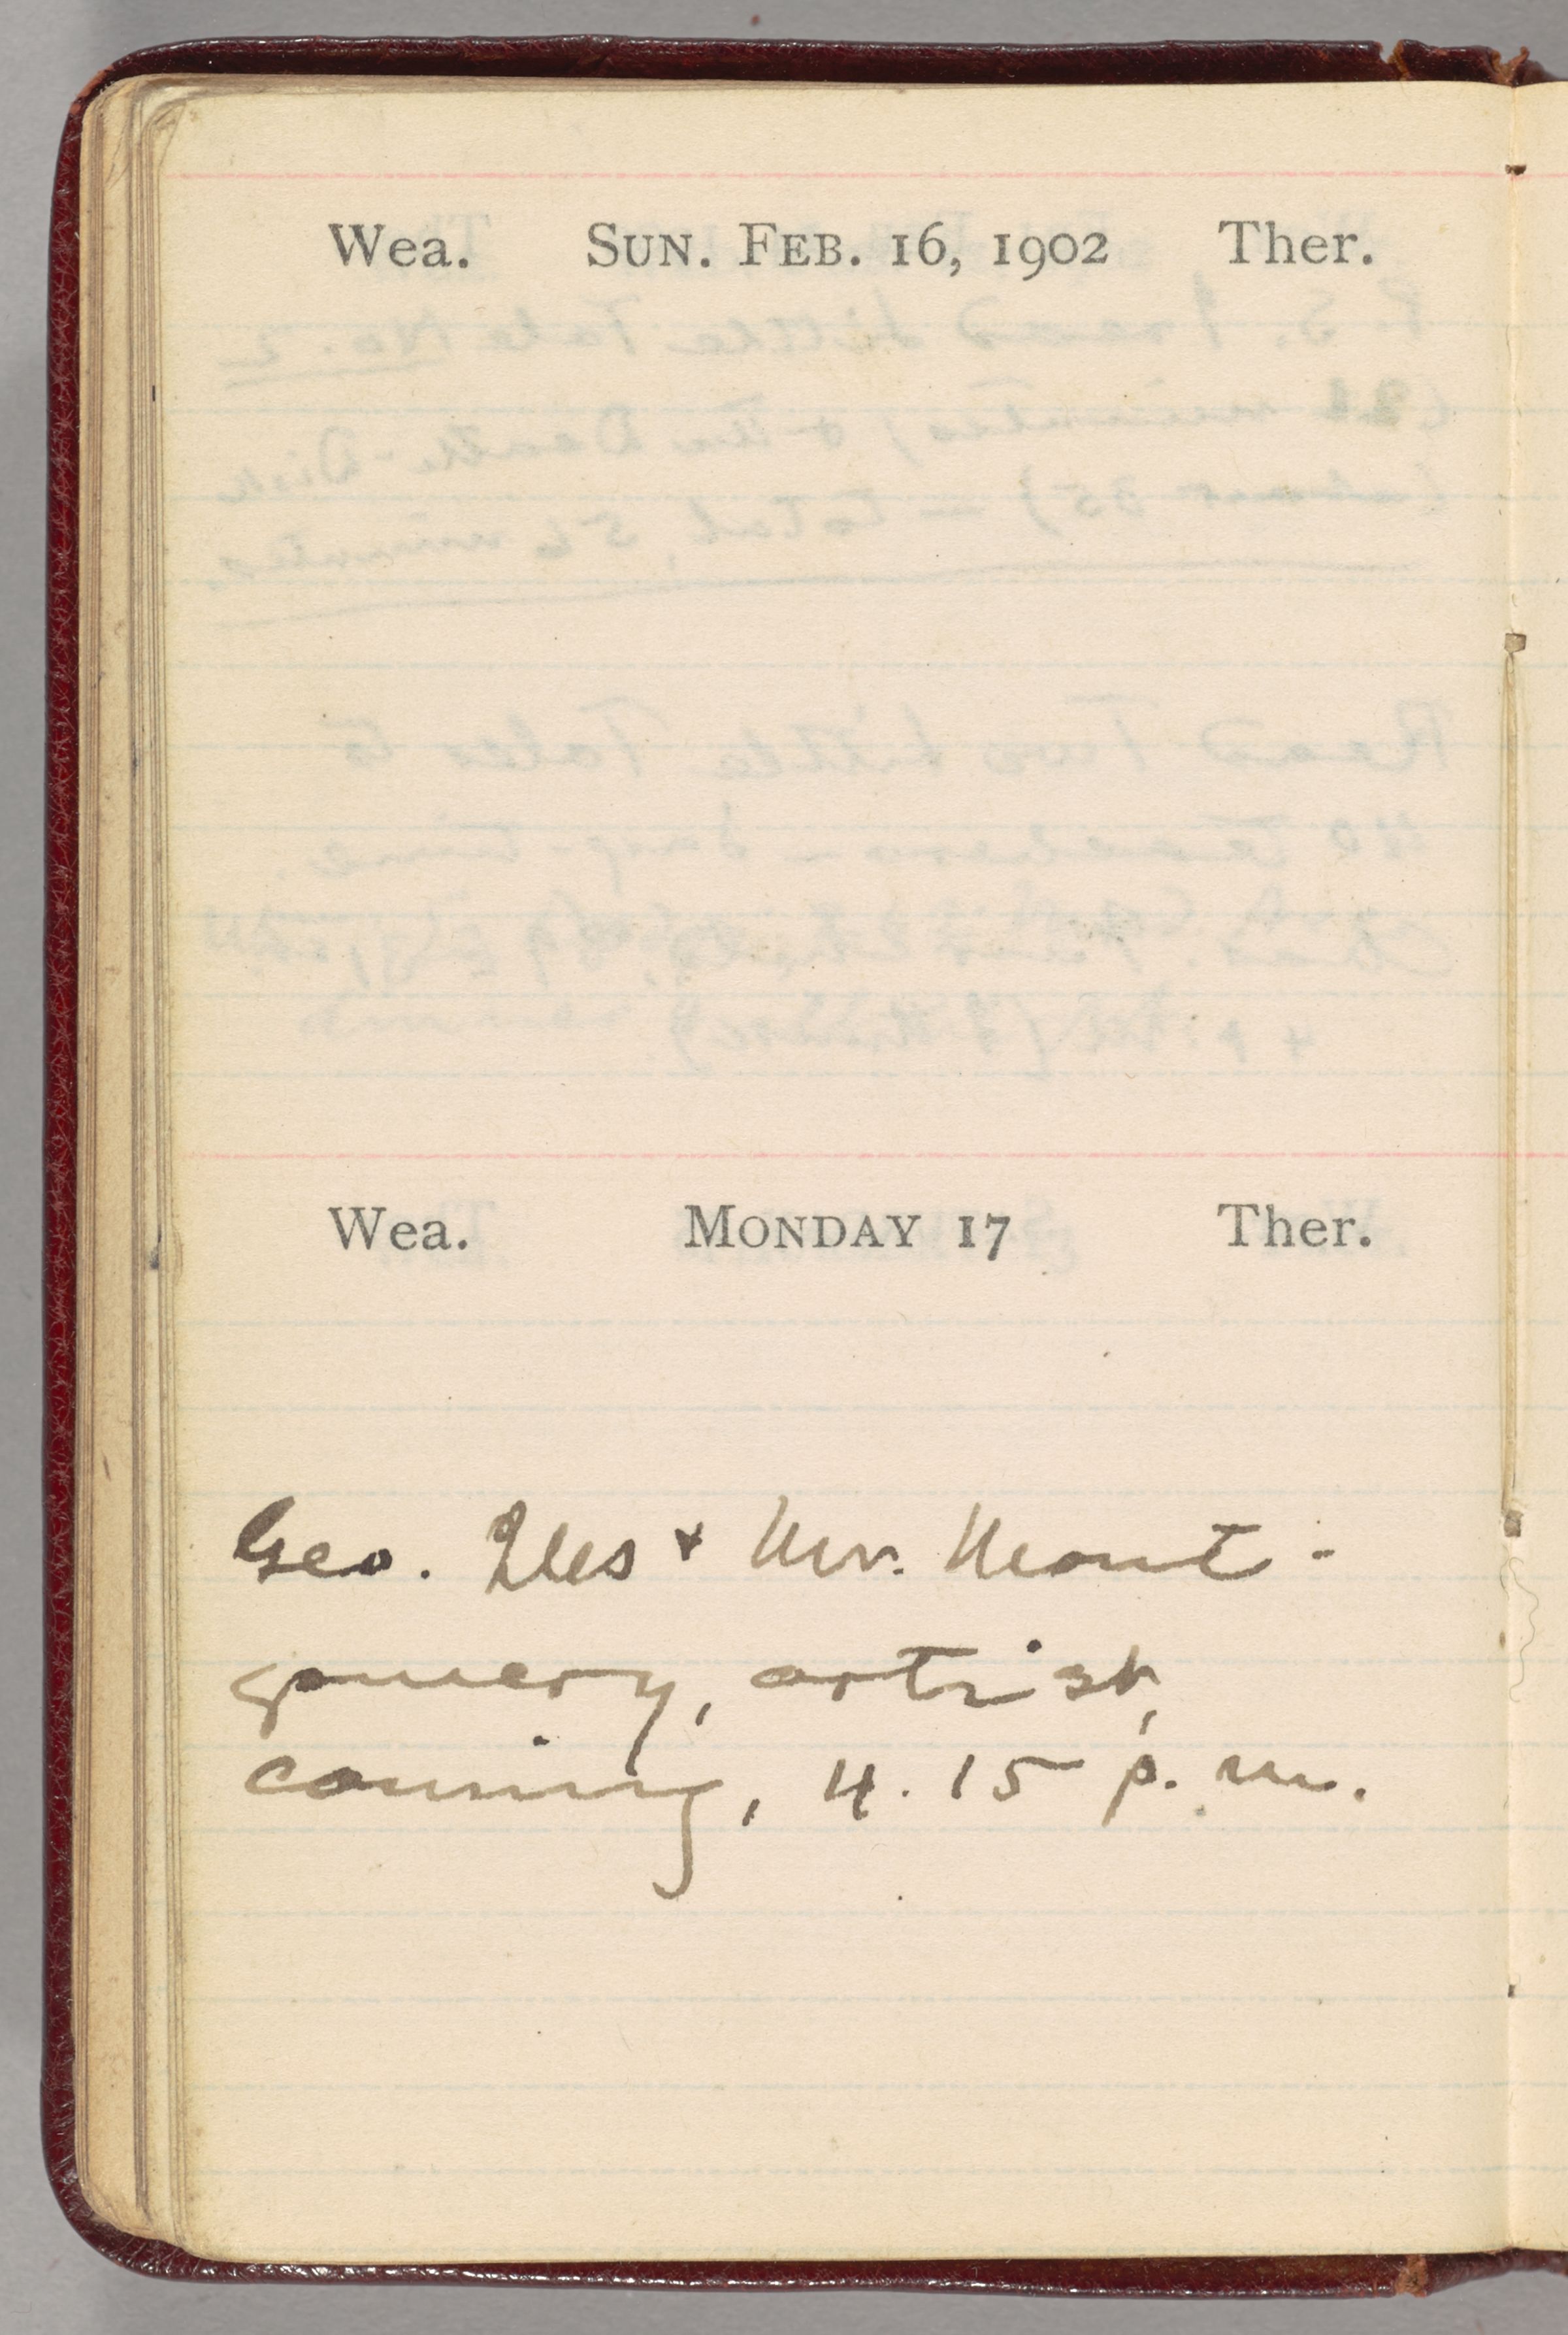 Wea. SUN. FEB. 16, 1902 Ther.
Wea. MONDAY 17 Ther.
Geo. Iles & Mr. Mont-
gomery, artist,
coming, 4.15 p.m.